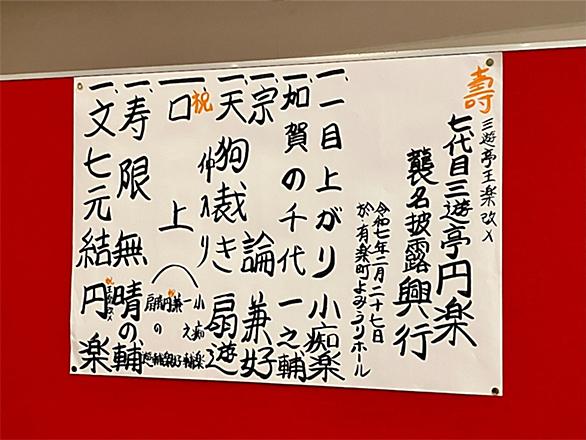 壽
三遊亭王楽改メ
七代目三遊亭円楽
襲名披露興行
令和七年二月二十七日
於・有楽町よみうりホール
一、一目上がり 小痴楽
一、加賀の千代 一之輔
一、宗論 兼好
一、天狗裁き 扇遊
仲入り
祝
一、口上
小痴楽
一之輔
兼好
円楽
晴の輔
扇遊
一、寿限無 晴の輔
一、文七元結 円楽